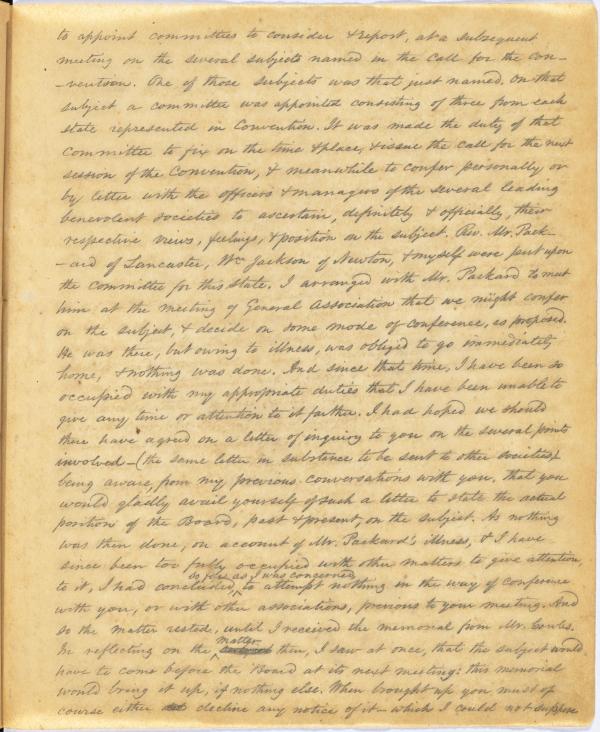 to appoint committees to consider & report, at a subsequent
meeting on the several subjects named in the call for the con-
-vention. One of those subjects was that just named. On that
subject a committee was appointed consisting of three from each
state represented in Convention. It was made the duty of that
committee to fix on the time & place, & issue the call for the next
session of the Convention, & meanwhile to confer personally or
by letter with the officers & managers of the several leading
benevolent societies to ascertain, definitely & officially, their
respective views, feelings, & position on the subject. Rev. Mr. Pack-
-ard of Lancaster, Wm Jackson of Newton, & myself were put upon
the committee for this state. I arranged with Mr. Packard to meet
him at the meeting of General Association that we might confer
on the subject, & decide on some mode of conference, as proposed.
He was there, but owing to illness, was obliged to go immediately
home, & nothing was done. And since that time, I have been so
occupied with my appropriate duties that I have been unable to
give any time or attention to it farther. I had hoped we should
there have agreed on a letter of inquiry to you on the several points
involved—(the same letter in substance to be sent to other societies)
being aware, from my previous conversations with you, that you
would gladly avail yourself of such a letter to state the actual
position of the Board, past & present, on the subject. As nothing
was then done, on account of Mr. Packard's illness, & I have
since been too fully occupied with other matters to give attention
to it, I had concluded, as far as I was concerned, to attempt nothing in the way of conference
with you, or with other associations, previous to your meeting. And
so the matter rested, until I received the memorial from Mr. Cowles.
In reflecting on the matter then, I saw at once, that the subject would
have to come before the Board at its next meeting: this memorial
would bring it up, if nothing else. When brought up you must of
course either decline any notice of it—which I could not suppose